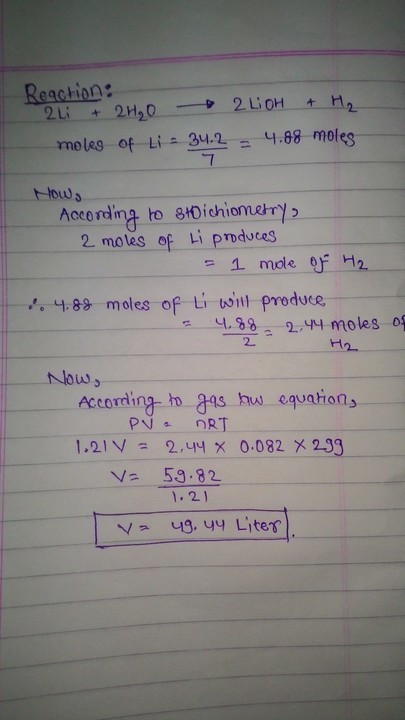 Reaction:
2Li + 2H₂O → 2LiOH + H₂
moles of Li = 34.2/7 = 4.88 moles
Now,
According to stoichiometry,
2 moles of Li produces
= 1 mole of H₂
∴ 4.88 moles of Li will produce
= 4.88/2 = 2.44 moles of
H₂
Now,
According to gas law equation,
PV = nRT
1.21 V = 2.44 × 0.082 × 299
V = 59.82/1.21
V = 49.44 Liter.